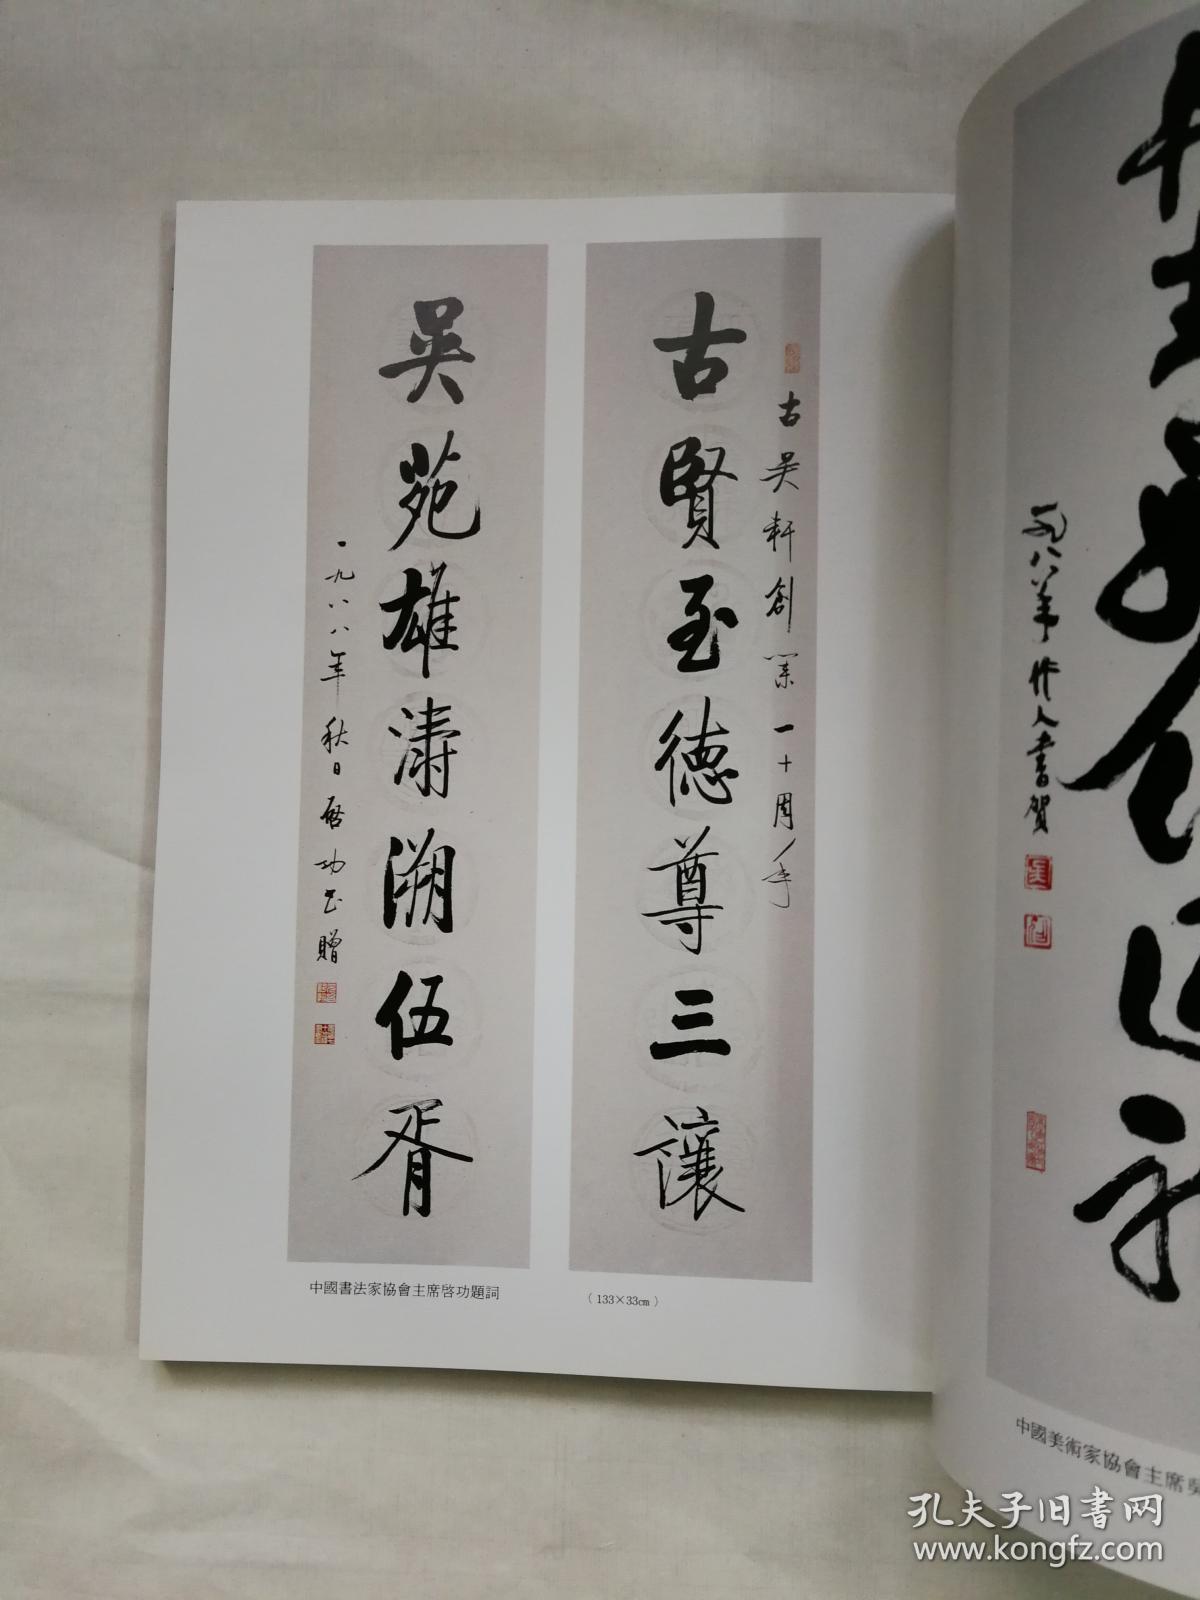 古吴軒創業一十周年
古賢至德尊三讓
吳苑雄濤溯伍胥
一九八八年秋日启功书贈
中國書法家協會主席啓功題詞
（133×33㎝）
一九八八年作人書賀
中國美術家協會主席吳
孔夫子旧書网
www.kongfz.com